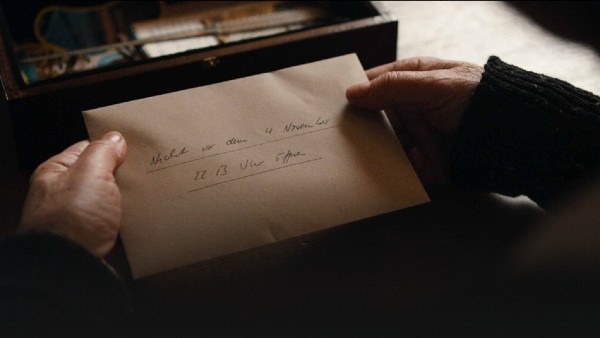 Nicht vor dem 4. November
22 13 Uhr öffnen